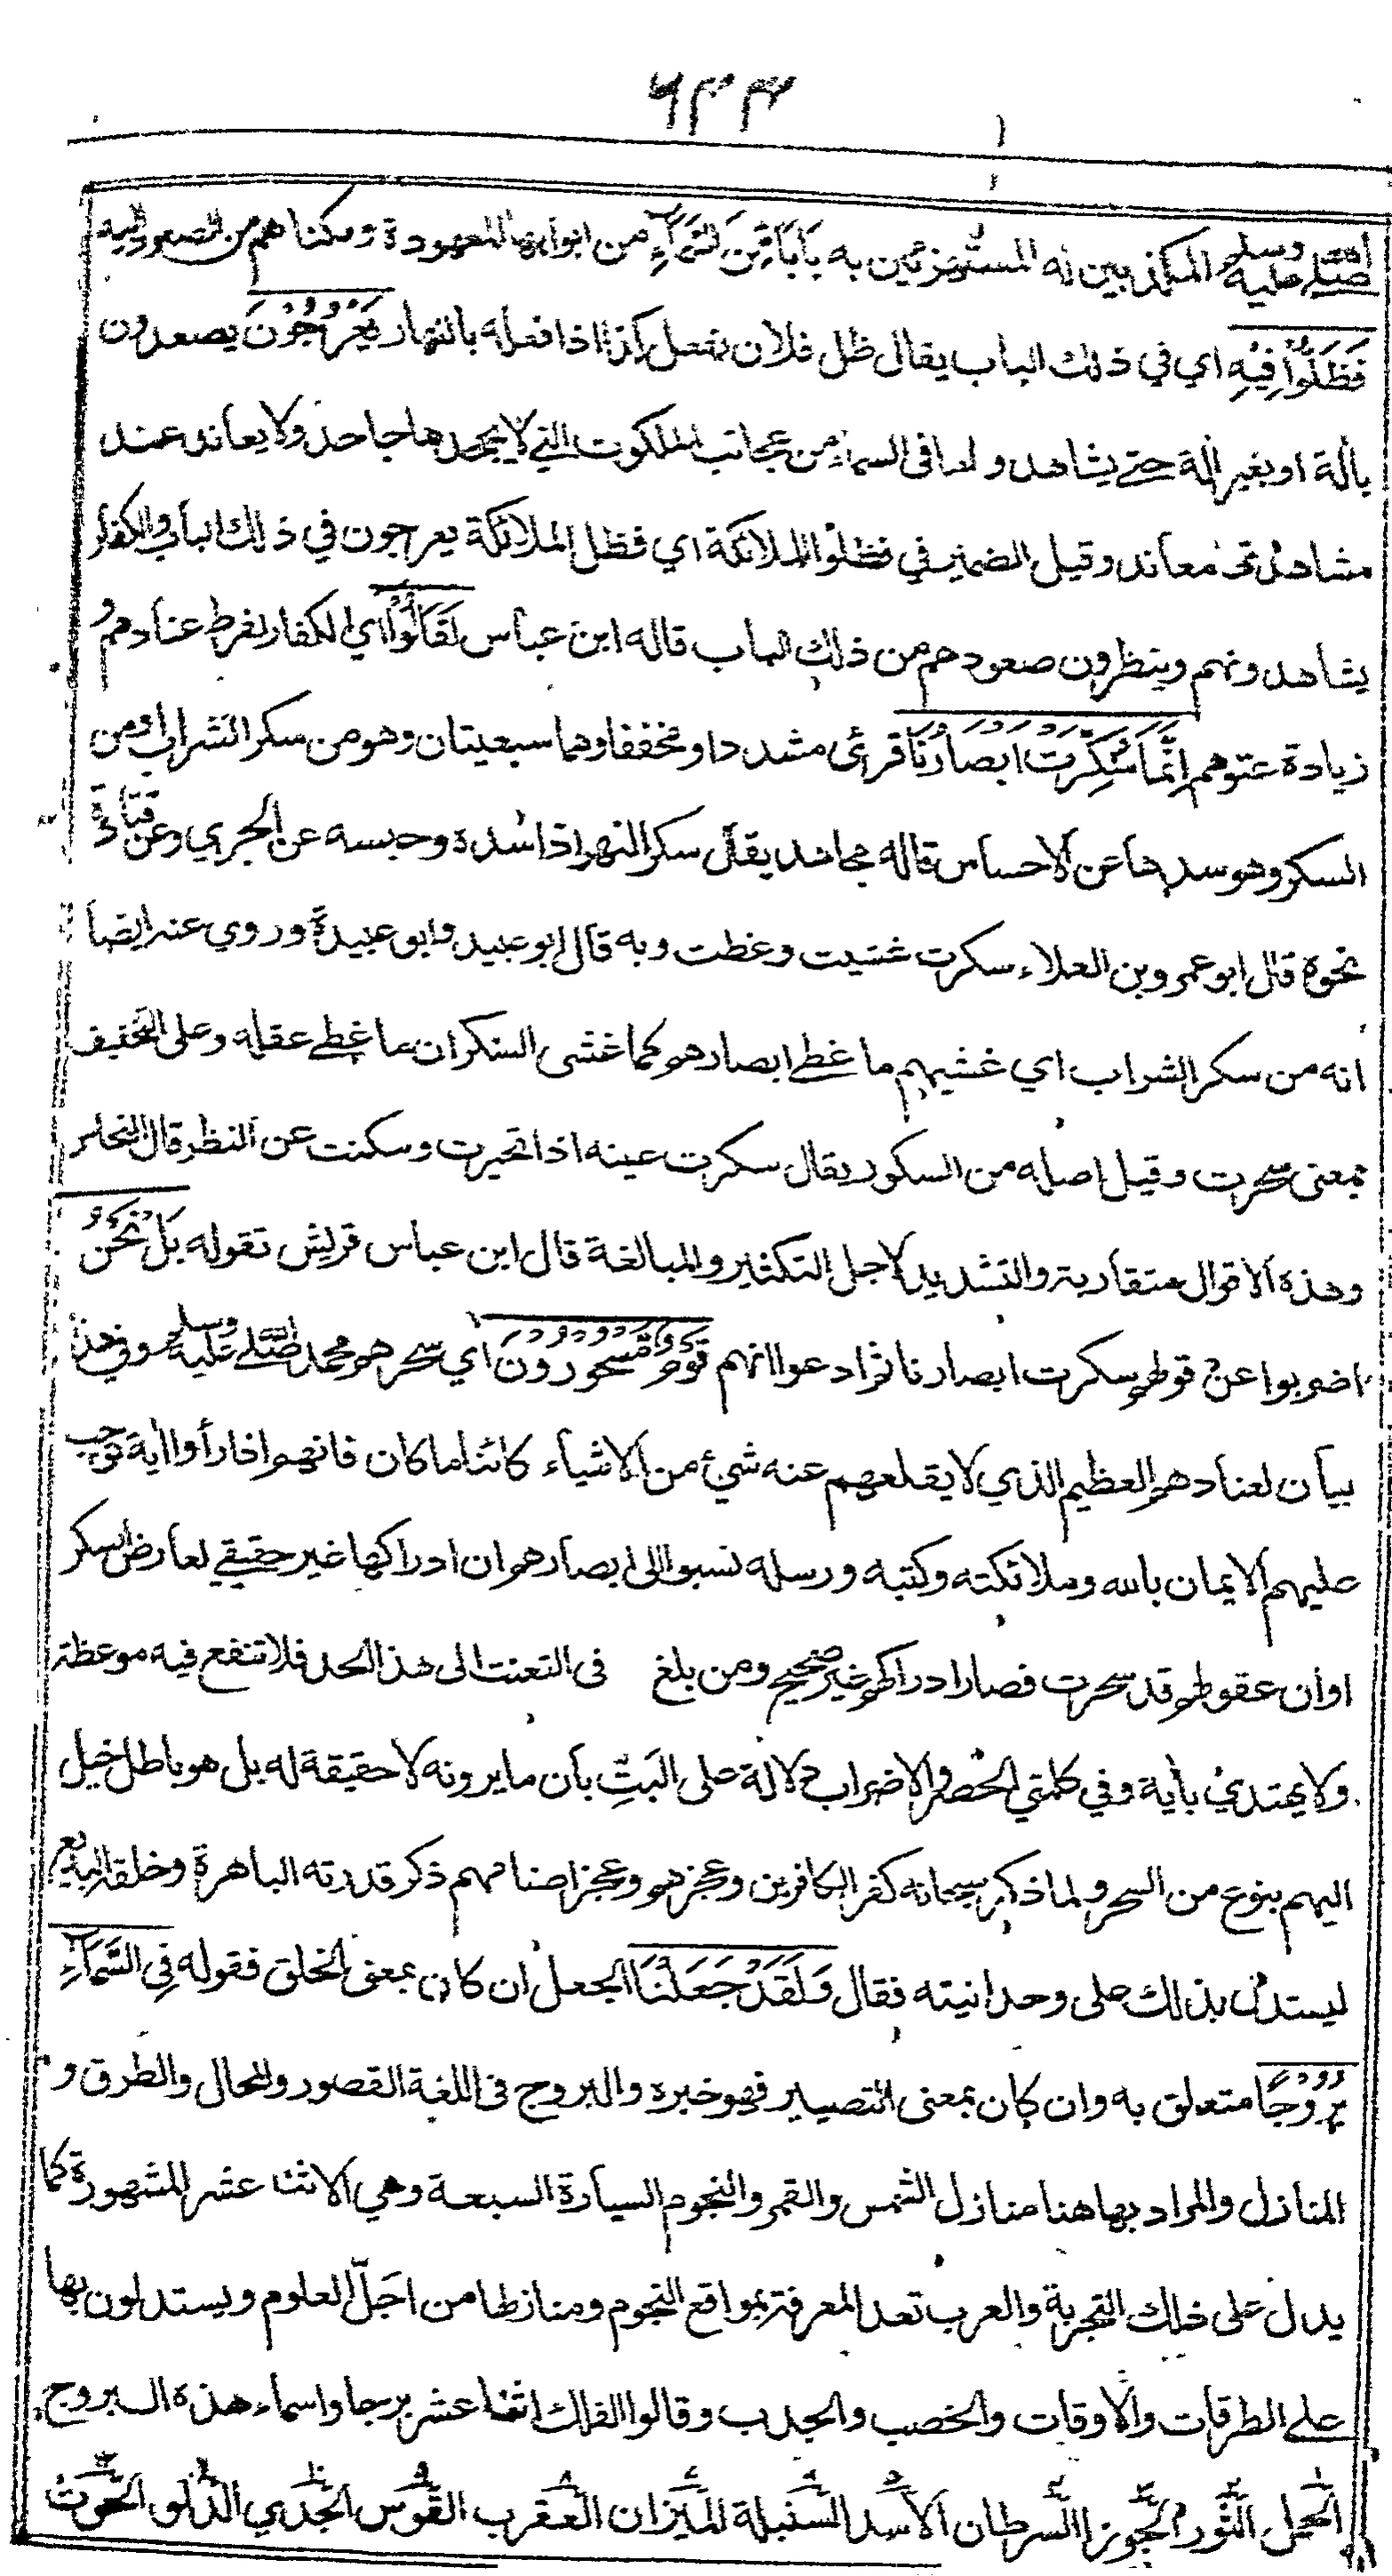 ٦٣٣
صلى الله عليه وسلم المكذبين له المستهزئين به بَابًا مِّنَ السَّمَآءِ من ابوابها المعهودة ومكناهم من الصعود اليه
فَظَلُّوْا فِيْهِ اي في ذلك الباب يقال ظل فلان يفعل كذا اذا فعله بالنهار يَعْرُجُوْنَ يصعدون
بألة او بغير ألة حتى يشاهدوا ما فى السماء من عجائب الملكوت التي لا يجحدها جاحد ولا يعاند عند
مشاهدتها معاند وقيل الضمير في فظلوا للملائكة اي فظل الملائكة يعرجون في ذلك الباب والكفار
يشاهدونهم وينظرون صعودهم من ذلك الباب قاله ابن عباس لَقَالُوْٓا اي الكفار لفرط عنادهم و
زيادة عتوهم اِنَّمَا سُكِّرَتْ اَبْصَارُنَا قرئ مشددا ومخففا وهما سبعيتان وهو من سكر الشراب او من
السكر وهو سدها عن الاحساس قاله مجاهد يقال سكر النهر اذا سده وحبسه عن الجري وعن قتادة
نحوه قال ابو عمرو بن العلاء سكرت غشيت وغطت وبه قال ابو عبيد وابو عبيدة وروي عنه ايضا
انه من سكر الشراب اي غشيهم ما غطى ابصارهم كما غشى السكران ما غطى عقله وعلى التخفيف
بمعنى سحرت وقيل اصله من السكور يقال سكرت عينه اذا تحيرت وسكنت عن النظر قال النحاس
وهذه الاقوال متقاربة والتشديد لاجل التكثير والمبالغة قال ابن عباس قريش تقوله بَلْ نَحْنُ
اضربوا عن قولهم سكرت ابصارنا ثم ادعوا انهم قَوْمٌ مَّسْحُوْرُوْنَ اي سحرهم محمد صلى الله عليه وسلم وفي هذا
بيان لعنادهم العظيم الذي لا يقلعهم عنه شيء من الاشياء كائنا ما كان فانهم اذا رأوا أية توجب
عليهم الايمان بالله وملائكته وكتبه ورسله نسبوا الى ابصارهم ان ادراكها غير حقيقي لعارض السكر
او ان عقولهم قد سحرت فصار ادراكهم غير صحيح ومن بلغ فى التعنت الى هذا الحد فلا تنفع فيه موعظة
ولا يهتدي بأية وفي كلمتي الحصر والاضراب دلالة على البتِّ بأن ما يرونه لا حقيقة له بل هو باطل خيل
اليهم بنوع من السحر ولما ذكر سبحانه كفر الكافرين وعجزهم وعجز اصنامهم ذكر قدرته الباهرة وخلقه البديع
ليستدل بذلك على وحدانيته فقال وَلَقَدْ جَعَلْنَا الجعل ان كان بمعنى الخلق فقوله فِى السَّمَآءِ
بُرُوْجًا متعلق به وان كان بمعنى التصيير فهو خبره والبروج فى اللغة القصور والمحال والطرق و
المنازل والمراد بها هنا منازل الشمس والقمر والنجوم السيارة السبعة وهي الاثنا عشر المشهورة كما
يدل على ذلك التجربة والعرب تعد المعرفة بمواقع النجوم ومنازلها من اجلّ العلوم ويستدلون بها
على الطرقات والاوقات والخصب والجدب وقالوا الفلك اثنا عشر برجا واسماء هذه البروج
الحَمل الثَّور الجَوزا السَّرطان الاَسد السّنبلة المِيزان العَقرب القَوس الجَدي الدَّلو الحُوت